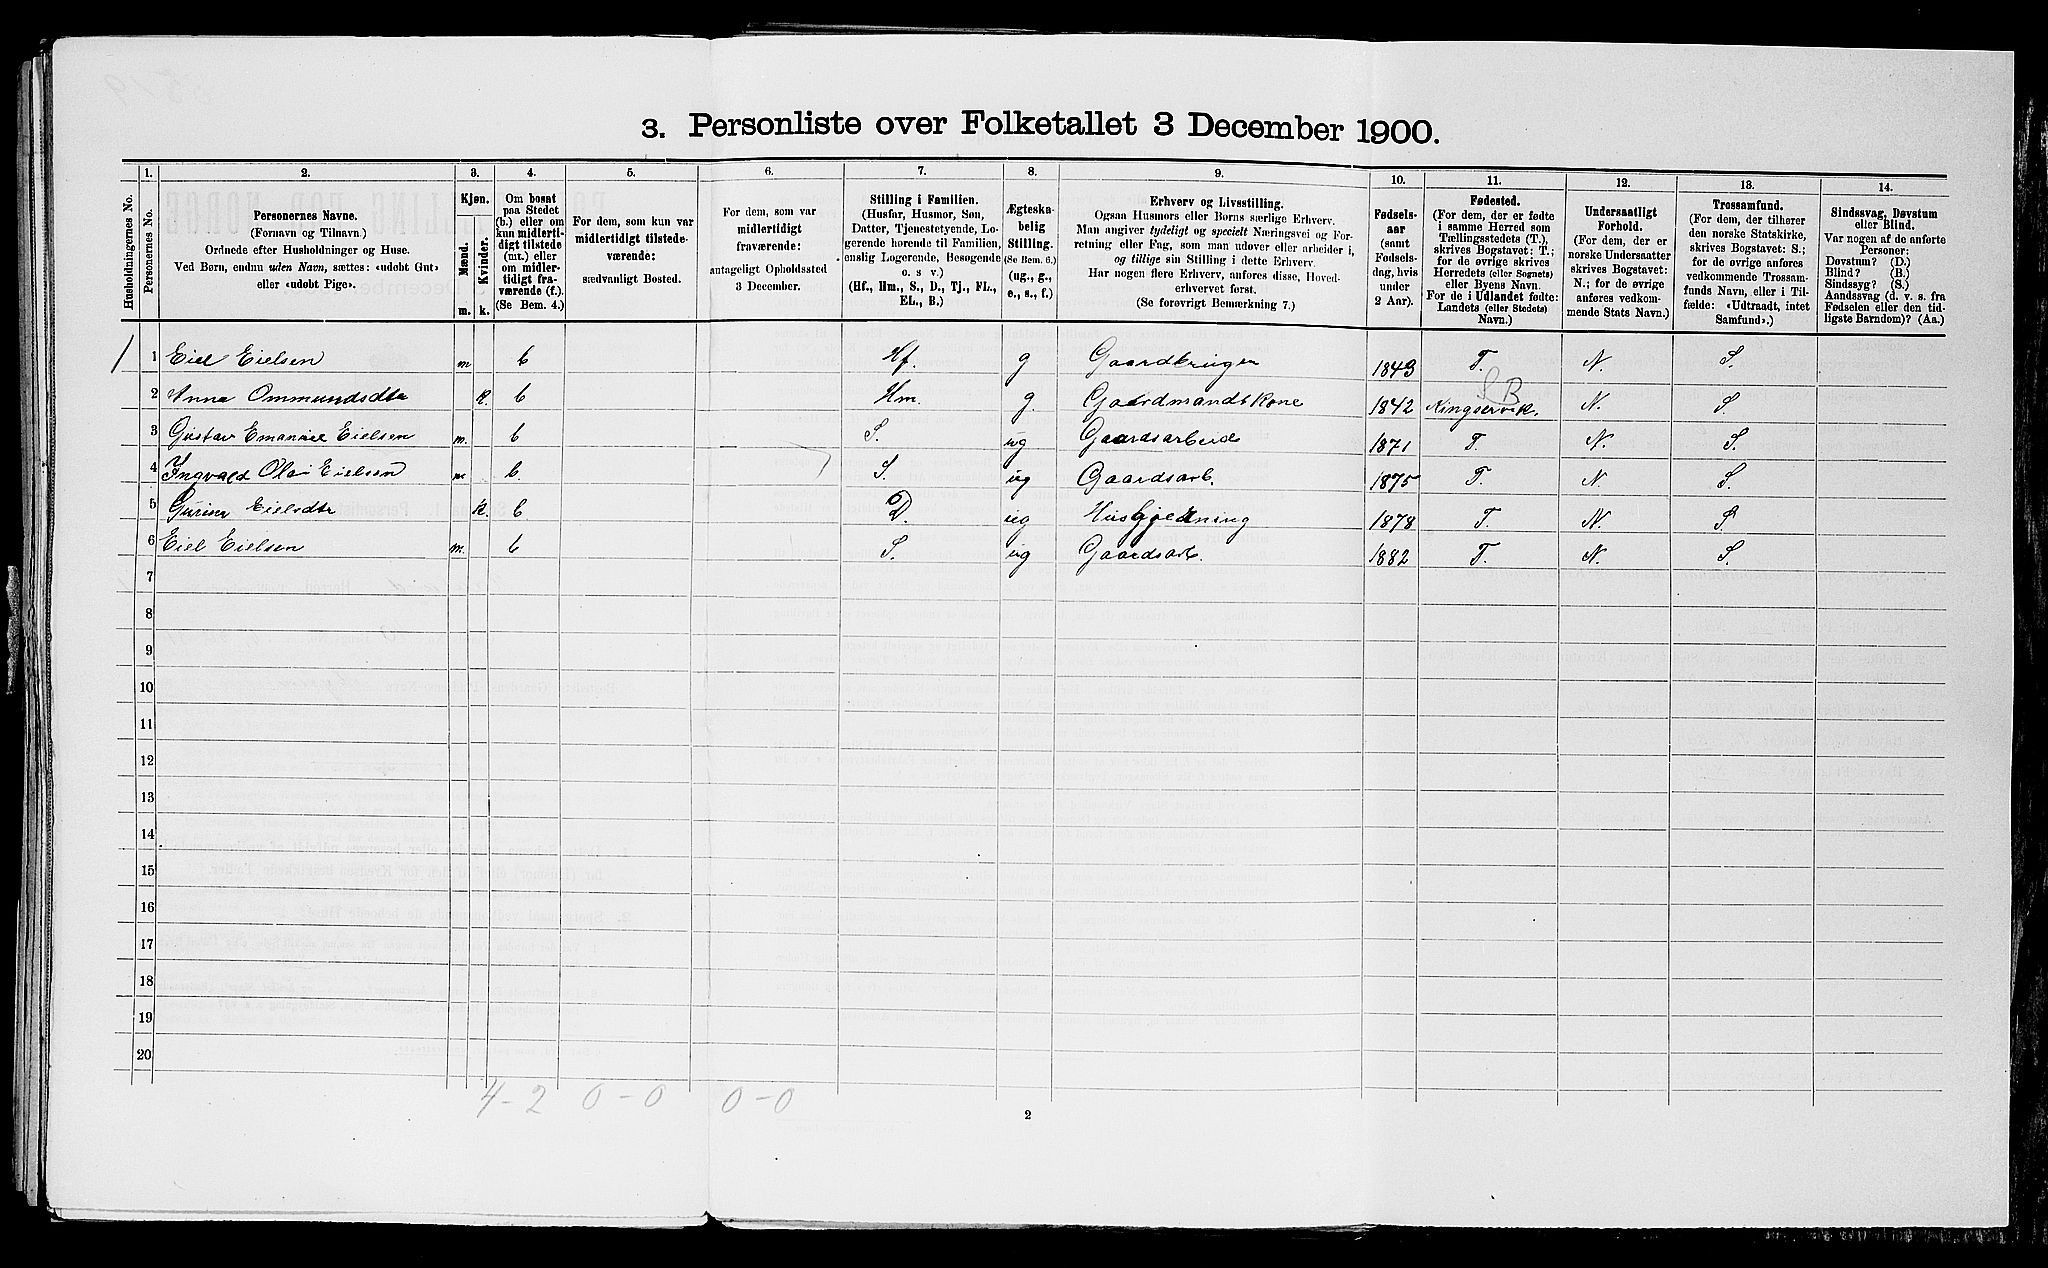 3. Personliste over Folketallet 3 December 1900.
1. 2. 3. 4. 5. 6. 7. 8. 9. 10. 11. 12. 13. 14.
Husholdningernes No.
Personernes No.
Personernes Navne.
(Fornavn og Tilnavn.)
Ordnede efter Husholdninger og Huse.
Ved Børn, endnu uden Navn, sættes: «udobt Gut»
eller «udobt Pige».
Kjøn.
Mænd.
Kvinder.
m. k.
Om bosat
paa Stedet
(b.) eller om
kun midlerti-
digt tilstede
(mt.) eller
om midler-
tidigt fra-
værende (f.).
(Se Bem. 4.)
For dem, som kun var
midlertidigt tilstede-
værende:
sædvanligt Bosted.
For dem, som var
midlertidigt
fraværende:
antageligt Opholdssted
3 December.
Stilling i Familien.
(Husfar, Husmor, Søn,
Datter, Tjenestetyende, Lo-
gerende hørende til Familien,
enslig Logerende, Besøgende
o. s v.)
(Hf., Hm., S., D., Tj., FL.,
EL., B.)
Ægteska-
belig
Stilling.
(Se Bem. 6.)
(ug., g.,
e., s., f.)
Erhverv og Livsstilling.
Ogsaa Husmors eller Børns særlige Erhverv.
Man angiver tydeligt og specielt Næringsvei og For-
retning eller Fag, som man udøver eller arbeider i,
og tillige sin Stilling i dette Erhverv.
Har nogen flere Erhverv, anføres disse, Hoved-
erhvervet først.
(Se forøvrigt Bemærkning 7.)
Fødsels-
aar
(samt
Fødsels-
dag, hvis
under
2 Aar).
Fødested.
(For dem, der er fødte
i samme Herred som
Tællingsstedets (T.),
skrives Bogstavet: T.;
for de øvrige skrives
Herredets (eller Sognets)
eller Byens Navn.
For de i Udlandet fødte:
Landets (eller Stedets)
Navn.)
Undersaatligt
Forhold.
(For dem, der er
norske Undersaatter
skrives Bogstavet:
N.; for de øvrige
anføres vedkom-
mende Stats Navn.)
Trossamfund.
(For dem, der tilhører
den norske Statskirke,
skrives Bogstavet: S.;
for de øvrige anføres
vedkommende Trossam-
funds Navn, eller i Til-
fælde: «Udtraadt, intet
Samfund».)
Sindssvag, Døvstum
eller Blind.
Var nogen af de anførte
Personer:
Døvstum? (D.)
Blind? (B.)
Sindssyg? (S.)
Aandssvag (d. v. s. fra
Fødselen eller den tid-
ligste Barndom)? (Aa.)
1 1 Eiel Eielsen m b Hf. g Gaardbruger 1843 T. N. S.
S B
2 Anna Ommundsdtr k. b Hm. g. Gaardmandskone 1842 N. S.
3 Gustav Emanuel Eielsen m. b S. ug Gaardsarbeid 1871 T. N. S.
4 Ingvald Olai Eielsen m b. S. ug Gaardsarb. 1875 T. N. S.
5 Gurine Eielsdtr k. b D. ug Husgjerning 1878 T. N. S
6 Eiel Eielsen m. b S. ug Gaardsarb. 1882 T. N. S.
7
8
9
10
11
12
13
14
15
16
17
18
19
20
4 - 2 0 - 0 0 - 0
2